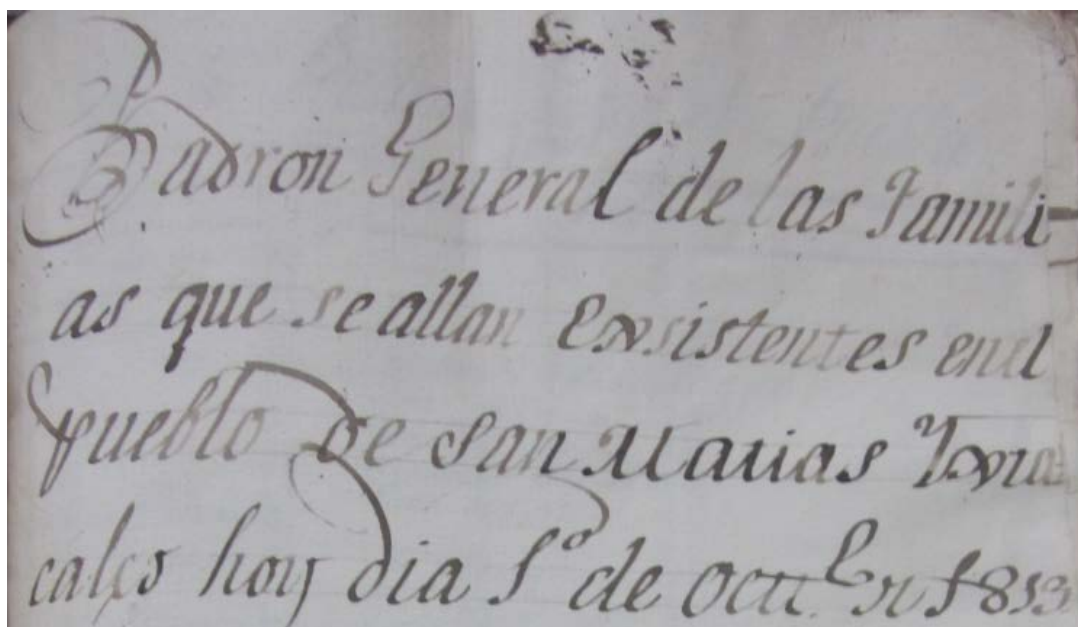 Padron General de las Famili-
as que se allan Exsistentes en el
pueblo de San Matias Yxta=
calco hoy dia 1º de Octt.bre 1813